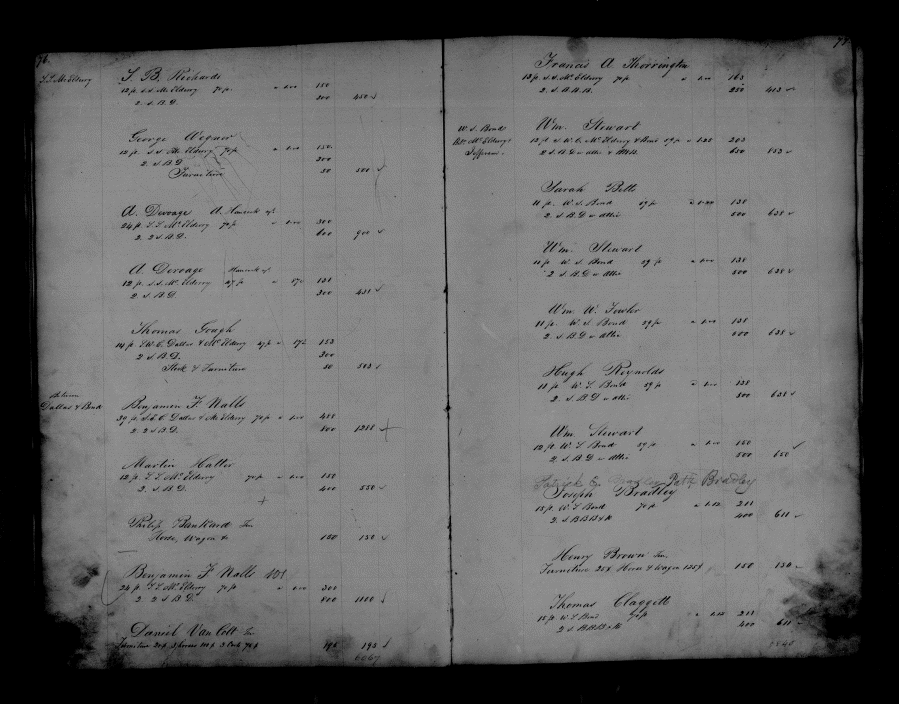 76.
S. S. McEldery
S. B. Richards
12 f. S. S. McEldery 70 f. a 1.00 150
2 S. B. D. 300 450
George Wegner
12 f. S. S. McEldery 70 f. a 1.00 150
2 S. B. D 300
Furniture 50 500
A. Devoage A.
24 f. S. S. McEldery 70 f. a 1.00 300
2. 2 S. B. D. 600 900
A. Devoage
12 f. S. S. McEldery 47 f. a 131
2. S. B. D 300 431
Thomas Gough
14 f. S. W. C. Dallas & McEldery 47 f. a 153
2 S. B. D. 300
Stock & Furniture 50 503
Between
Dallas & Bond
Benjamin F. Nalls
39 f. S. E. C. Dallas & McEldery 70 f. a 1.00 488
2. 2 S. B. D. 800 1288
Martin Hatter
12 f. S. S. McEldery 70 f. a 1.00 150
2. S. B. D. 400 550
Philip Bankard
Horse, Wagon &c 150 150
Benjamin F. Nalls 401
24 f. S. S. McEldery 70 f. a 1.00 300
2. 2 S. B. D. 800 1100
Daniel Van Colt
Furniture 20 3 horses 100 3 Carts 75 195 195
6067
77
Francis A Thorrington
13 f. S. S. McEldery 70 f. a 1.00 163
2. S. B. B. 250 413
W. S. Bond
Bet. McEldery &
Jefferson.
Wm. Stewart
12 f. N. W. C. McEldery & Bond 59 f. a 203
2 S. B. D & attic & 650 853
Sarah Betts
11 f. W. S. Bond 59 f. a 1.00 138
2 S. B. D & attic 500 638
Wm. Stewart
11 f. W. S. Bond 59 f. a 1.00 138
2 S. B. D & attic 500 638
Wm. W. Fowler
11 f. W. S. Bond 59 f. a 1.00 138
2. S. B. D & attic 500 638
Hugh Reynolds
11 f. W. S. Bond 59 f. a 1.00 138
2. S. B. D & attic 500 638
Wm Stewart
12 f. W. S. Bond 59 f. a 1.00 150
2. S. B. D & attic 500 650
Patrick Bradley Patk Bradley
Joseph Bradley
15 f. W. S. Bond 70 f. a 1.12 211
2 S. B. B & K 400 611
Henry Brown
Furniture 25 $ Horse & Wagon 125 $ 150 150
Thomas Claggett
15 f. W. S. Bond 70 f. a 1.12 211
2 S. B. B. B & K 400 611